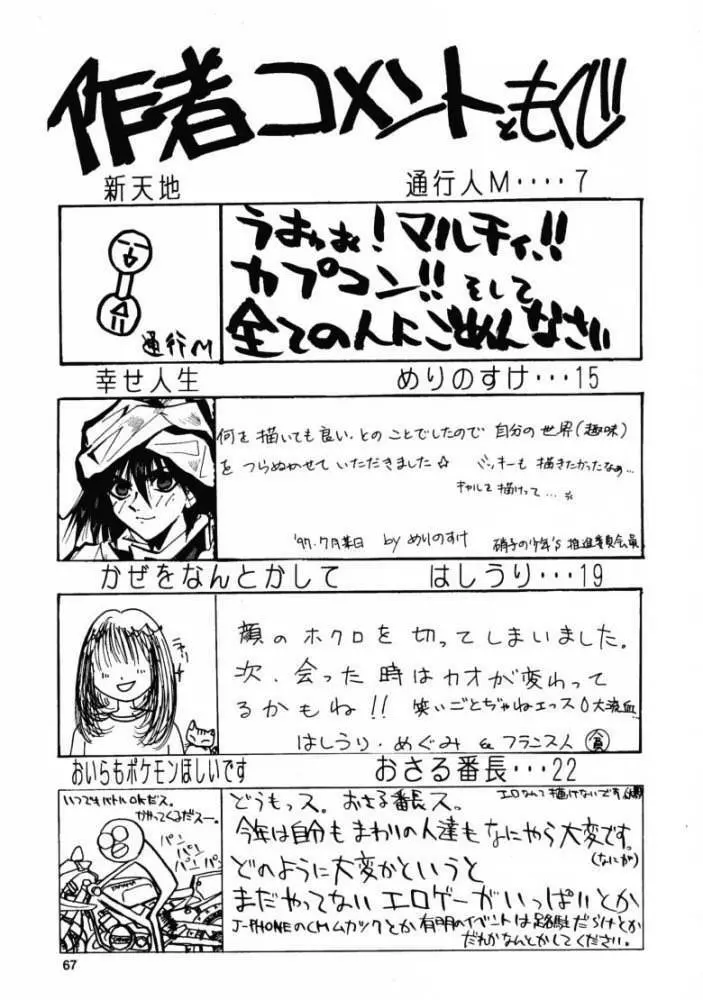 作者コメントともくじ
新天地 通行人M‥‥7
うおぉぉ!マルチィ!!
カプコン!!そして
全ての人にごめんなさい
通行M
幸せ人生 めりのすけ‥‥15
何を描いても良い、とのことでしたので 自分の世界(趣味)
をつらぬかせていただきました☆ バッキーも描きたかったなぁ…
ギャルで描けって…
'97.7月某日 by めりのすけ 硝子の少年's 推進委員会員
かぜをなんとかして はしうり‥‥19
顔のホクロを切ってしまいました。
次、会った時はカオが変わって
るかもね!! 笑いごとぢゃねエっス 大流血
はしうり・めぐみ & フランス人 貧
おいらもポケモンほしいです おさる番長‥‥22
いつでもバトルOKだス。
かかってくるだスー。
パン
パン パン
パン パン
どうもっス。おさる番長ス。
エロなんて描けないです
今年は自分もまわりの人達もなにやら大変です。
(なにが)
どのように大変かというと
まだやってないエロゲーがいっぱいとか
J-PHONEのCMムカックとか有明のイベントは路駐だらけとか
だれかなんとかしてください。
67